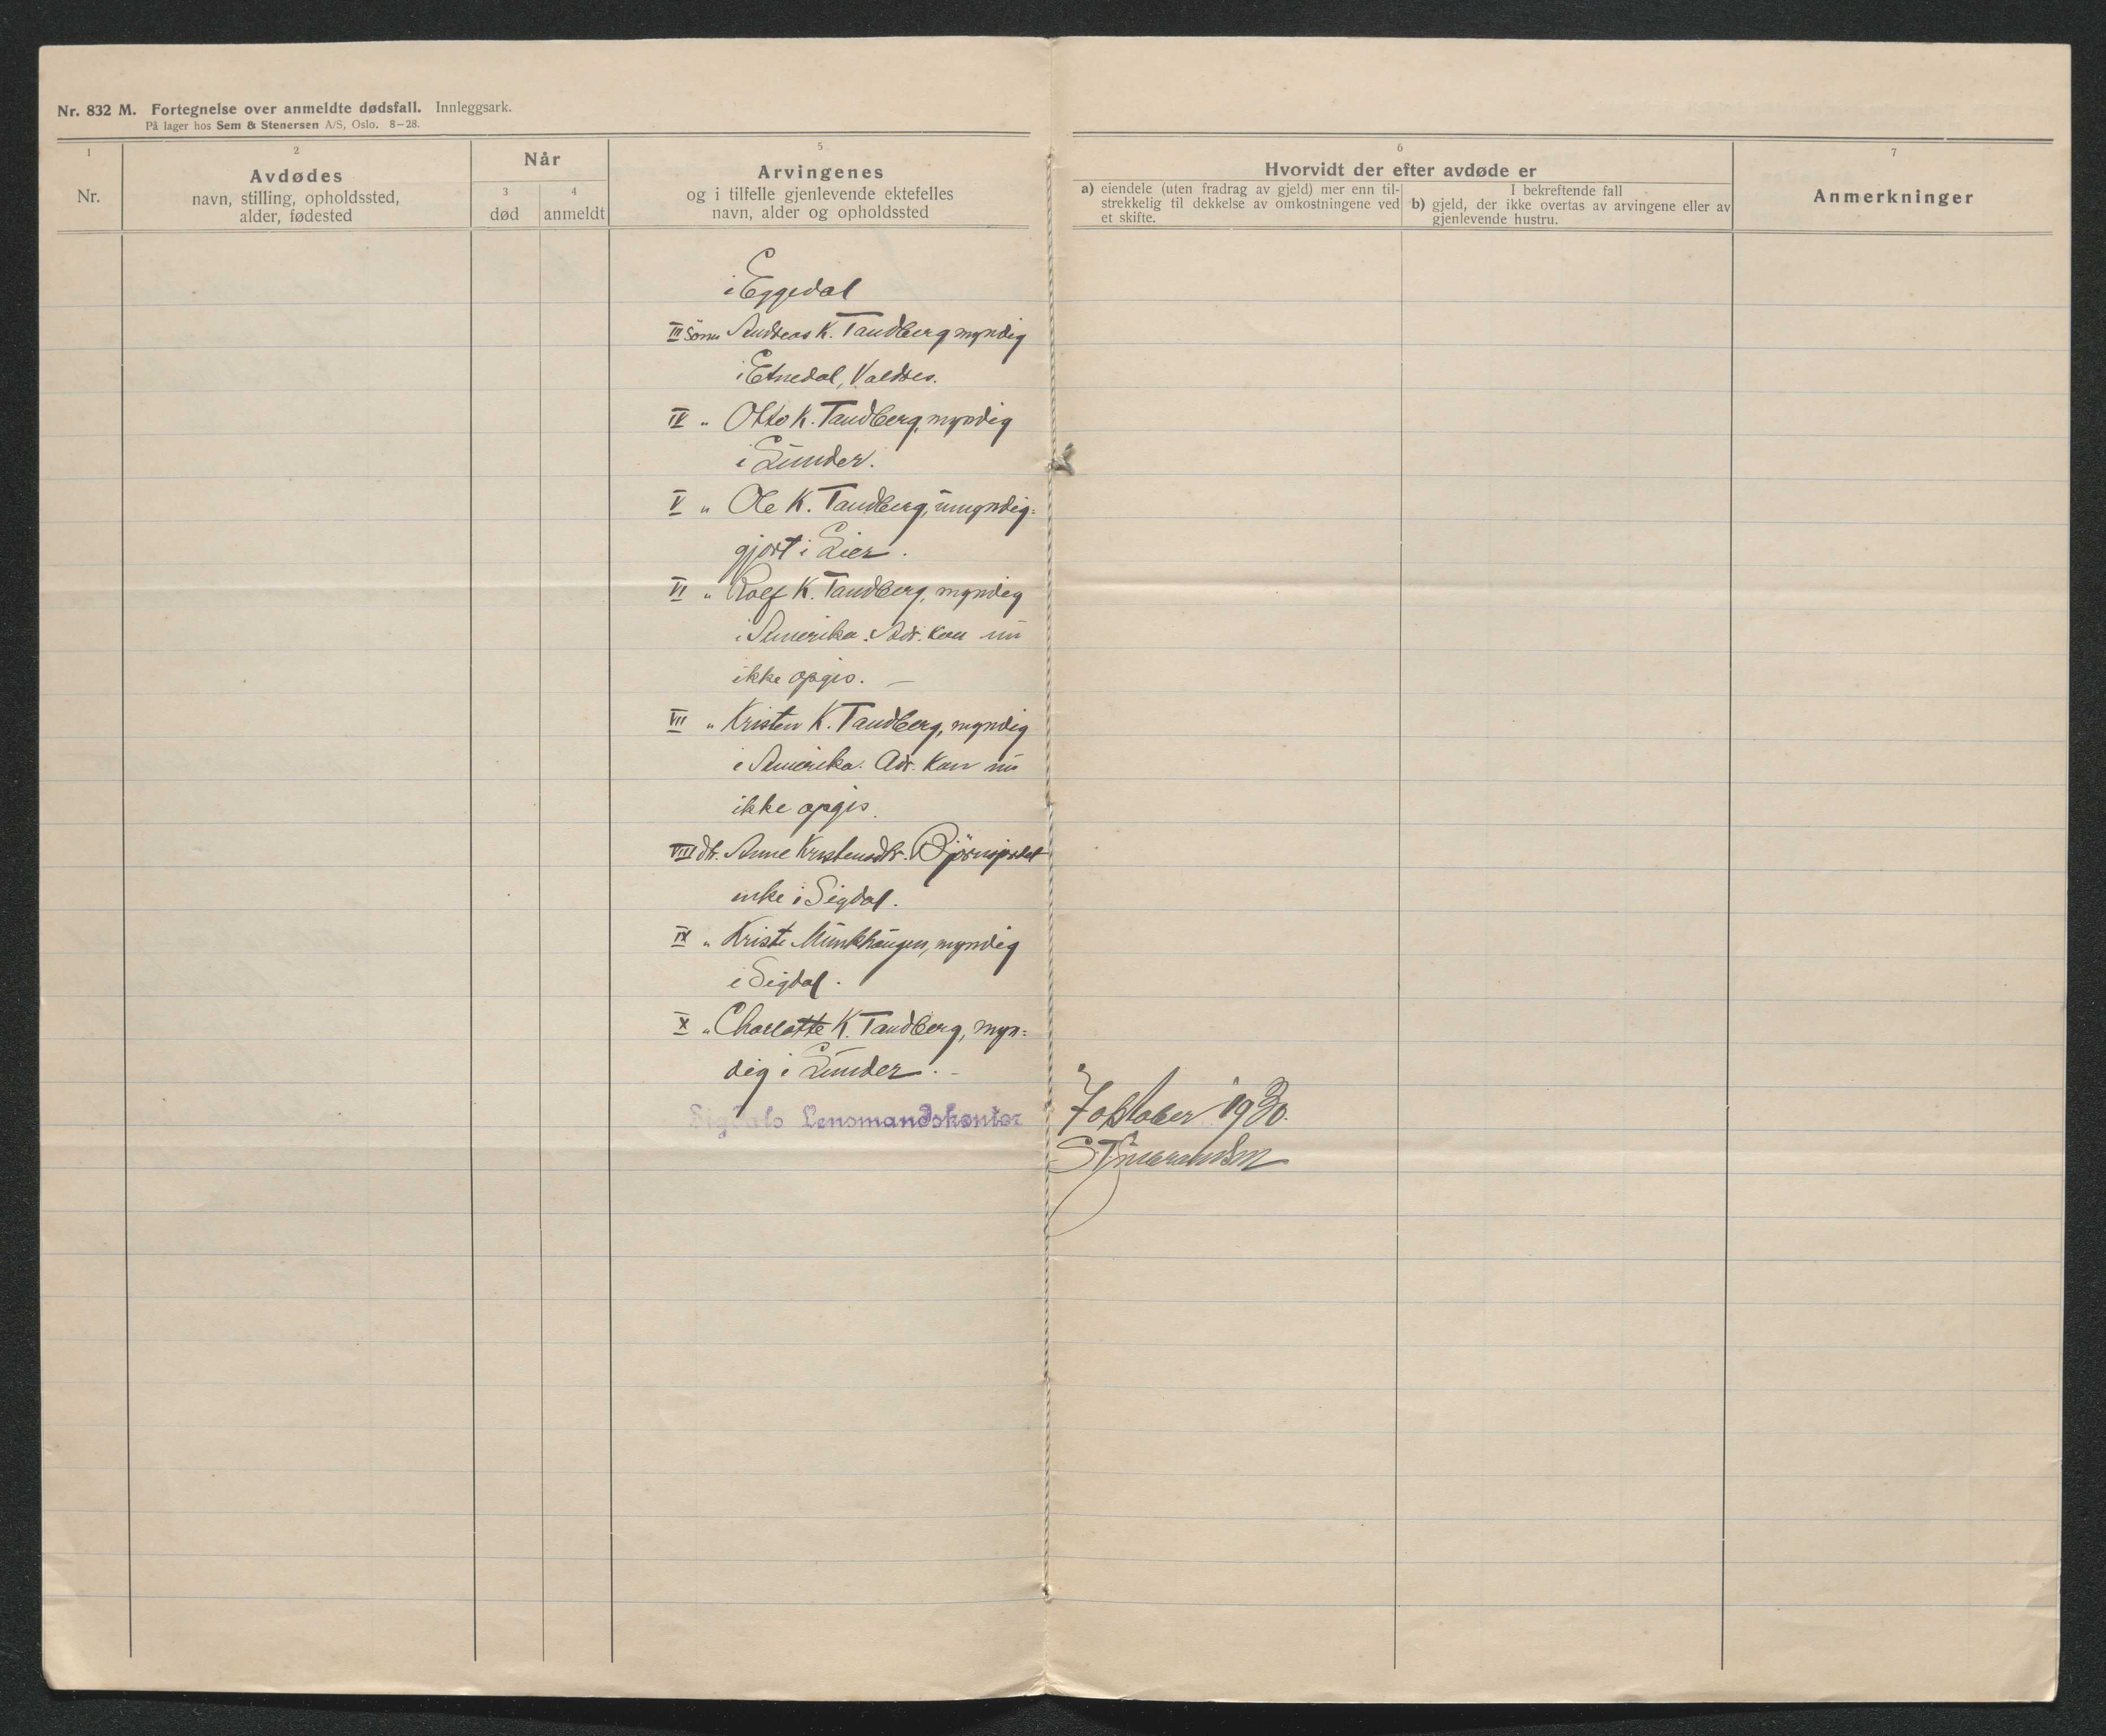 Nr. 832 M. Fortegnelse over anmeldte dødsfall. Innleggsark.
På lager hos Sem & Stenersen A/S, Oslo. 8—28.
1
Nr.
2
Avdødes
navn, stilling, opholdssted,
alder, fødested
Når
3
død
4
anmeldt
5
Arvingenes
og i tilfelle gjenlevende ektefelles
navn, alder og opholdssted
6
Hvorvidt der efter avdøde er
a) eiendele (uten fradrag av gjeld) mer enn til-
strekkelig til dekkelse av omkostningene ved
et skifte.
I bekreftende fall
b) gjeld, der ikke overtas av arvingene eller av
gjenlevende hustru.
7
Anmerkninger
i Eggedal
III sönn Andreas K. Tandberg myndig
i Etnedal, Valdres.
IV " Otto K. Tandberg, myndig
i Lunder.
V " Ole K. Tandberg, umyndig=
gjort i Lier.
VI " Rolf K. Tandberg, myndig
i Amerika. Adr. kan nu
ikke opgis. —
VII " Kristen K. Tandberg, myndig
i Amerika. Adr. kan nu
ikke opgis.
VIII dtr. Anne Kristensdtr.
enke i Sigdal.
IX " Kristi Munkhaugen, myndig
i Sigdal.
X " Charlotte K. Tandberg, myn=
dig i Lunder. -
Sigdals Lensmandskontor 7 oktober 1930.